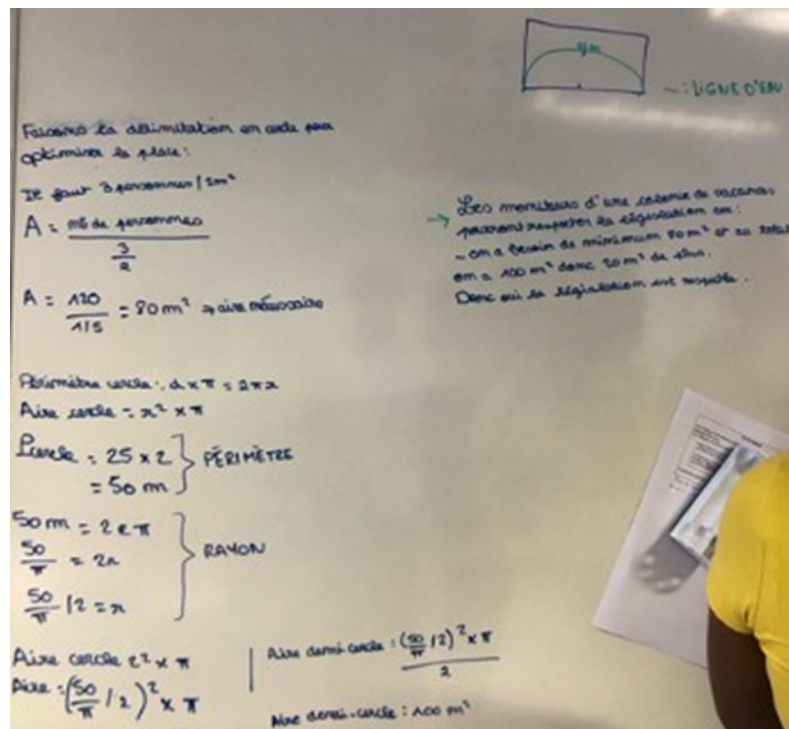 25 m
~ : LIGNE D'EAU
Faisons la délimitation en arde pour
optimiser la place :
Il faut 3 personnes / 2m²
A = nb de personnes
3
2
A = 120
1,5
= 80 m² → aire nécessaire
→ Les moniteurs d'une colonie de vacances
pourront respecter la législation car :
- on a besoin de minimum 80 m² et au total
on a 100 m² donc 20 m² de plus.
Donc oui la législation est respectée.
Périmètre cercle : d x π = 2πr
Aire cercle = r² x π
Pcercle = 25 x 2
= 50 m
PÉRIMÈTRE
50 m = 2 r π
50
π
= 2r
50
π
/ 2 = r
RAYON
Aire cercle r² x π
Aire = (50/π / 2)² x π
Aire demi cercle : (50/π / 2)² x π
2
Aire demi-cercle : 100 m²